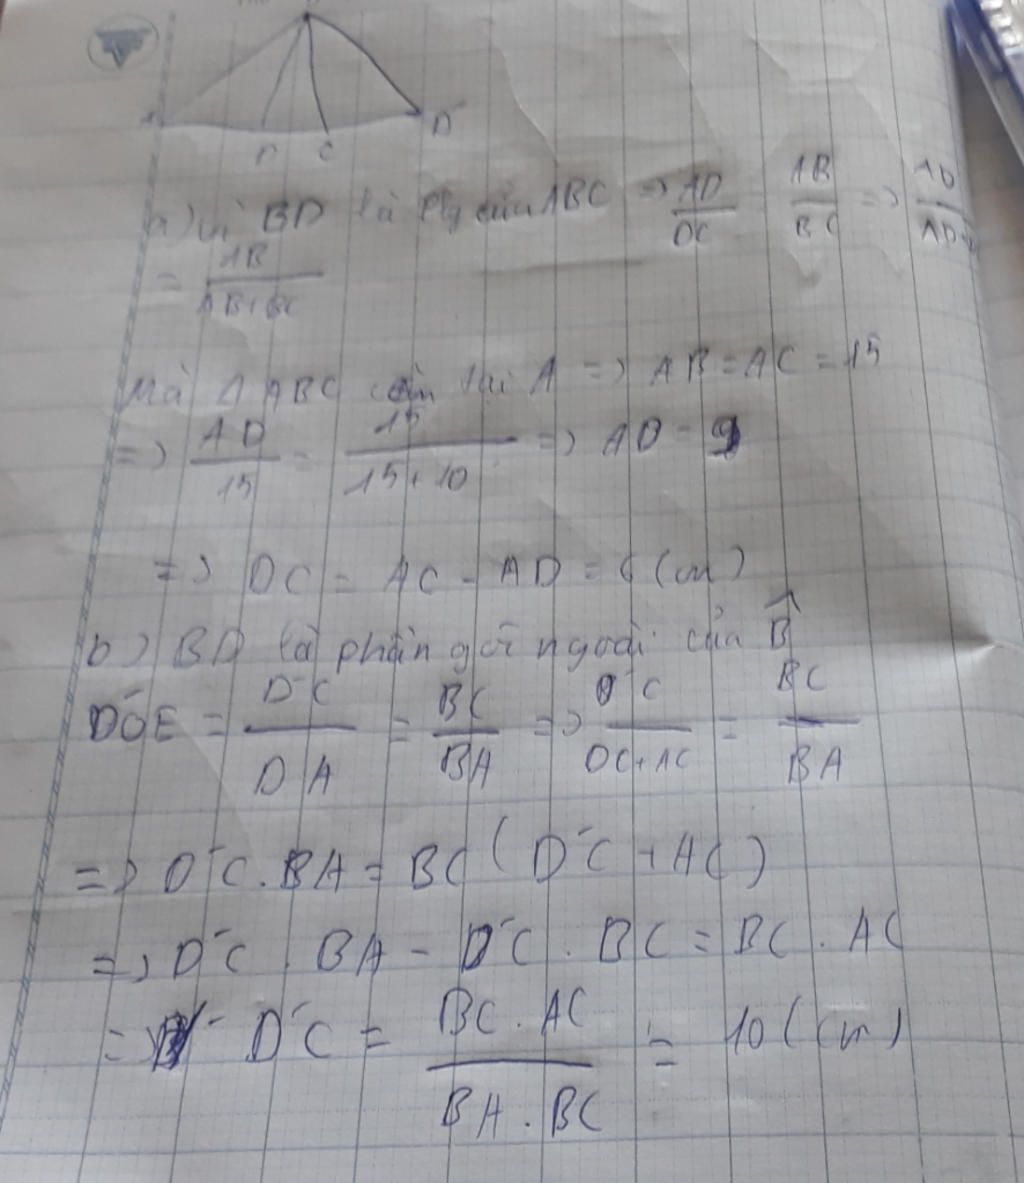 D'
D C
a) Vì BD là p/g của ABC => AD/DC = AB/BC => AD/AD+
= AB/AB+BC
Mà Δ ABC cân tại A => AB = AC = 15
=> AD/15 = 15/15+10 => AD = 9
=> DC = AC - AD = 6 (cm)
b) BD' là phân gới ngoài của B̂
= D'C/DA = BC/BA => D'C/DC+AC = BC/BA
=> D'C . BA = BC (D'C + AC)
=> D'C . BA - D'C . BC = BC . AC
=> D'C = BC . AC/BA . BC = (cm)